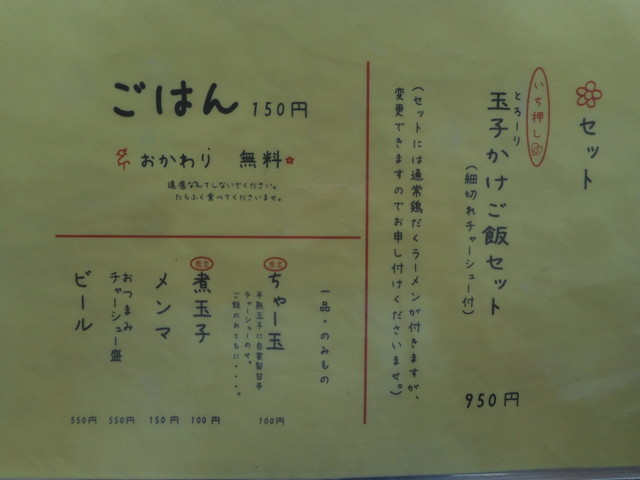 セット
いち押し
とろーり
玉子かけご飯セット
(細切れチャーシュー付)
950円
(セットには通常鶏だくラーメンが付きますが、
変更できますのでお申し付けくださいませ。)
ごはん 150円
おかわり 無料
遠慮なんてしないでください。
たらふく食べてくださいませ。
一品・のみもの
ちゃー玉
半熟玉子に自家製甘辛
チャーシューのせ。
ご飯のおともに・・・。
100円
煮玉子
100円
メンマ
150円
おつまみ
チャーシュー盛
550円
ビール
550円